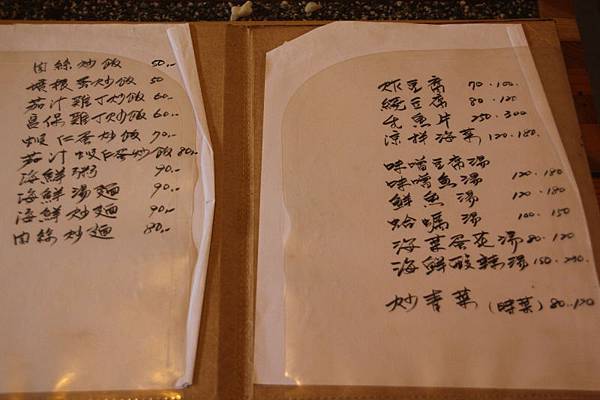 肉絲炒飯 50..
培根蛋炒飯 50
茄汁雞丁炒飯 60..
宮保雞丁炒飯 60..
蝦仁蛋炒飯 70..
茄汁蝦仁蛋炒飯 80..
海鮮粥 90..
海鮮湯麵 90..
海鮮炒麵 90..
肉絲炒麵 80..
炸豆腐 70.100.
燒豆腐 80.120
生魚片 250.300
涼拌海菜 120.180.
味噌豆腐湯
味噌魚湯 120.180
鮮魚湯 120.180
蛤蠣湯 100.150
海菜蛋花湯 80.120
海鮮酸辣湯 150.200.
炒青菜 (時菜) 80..120